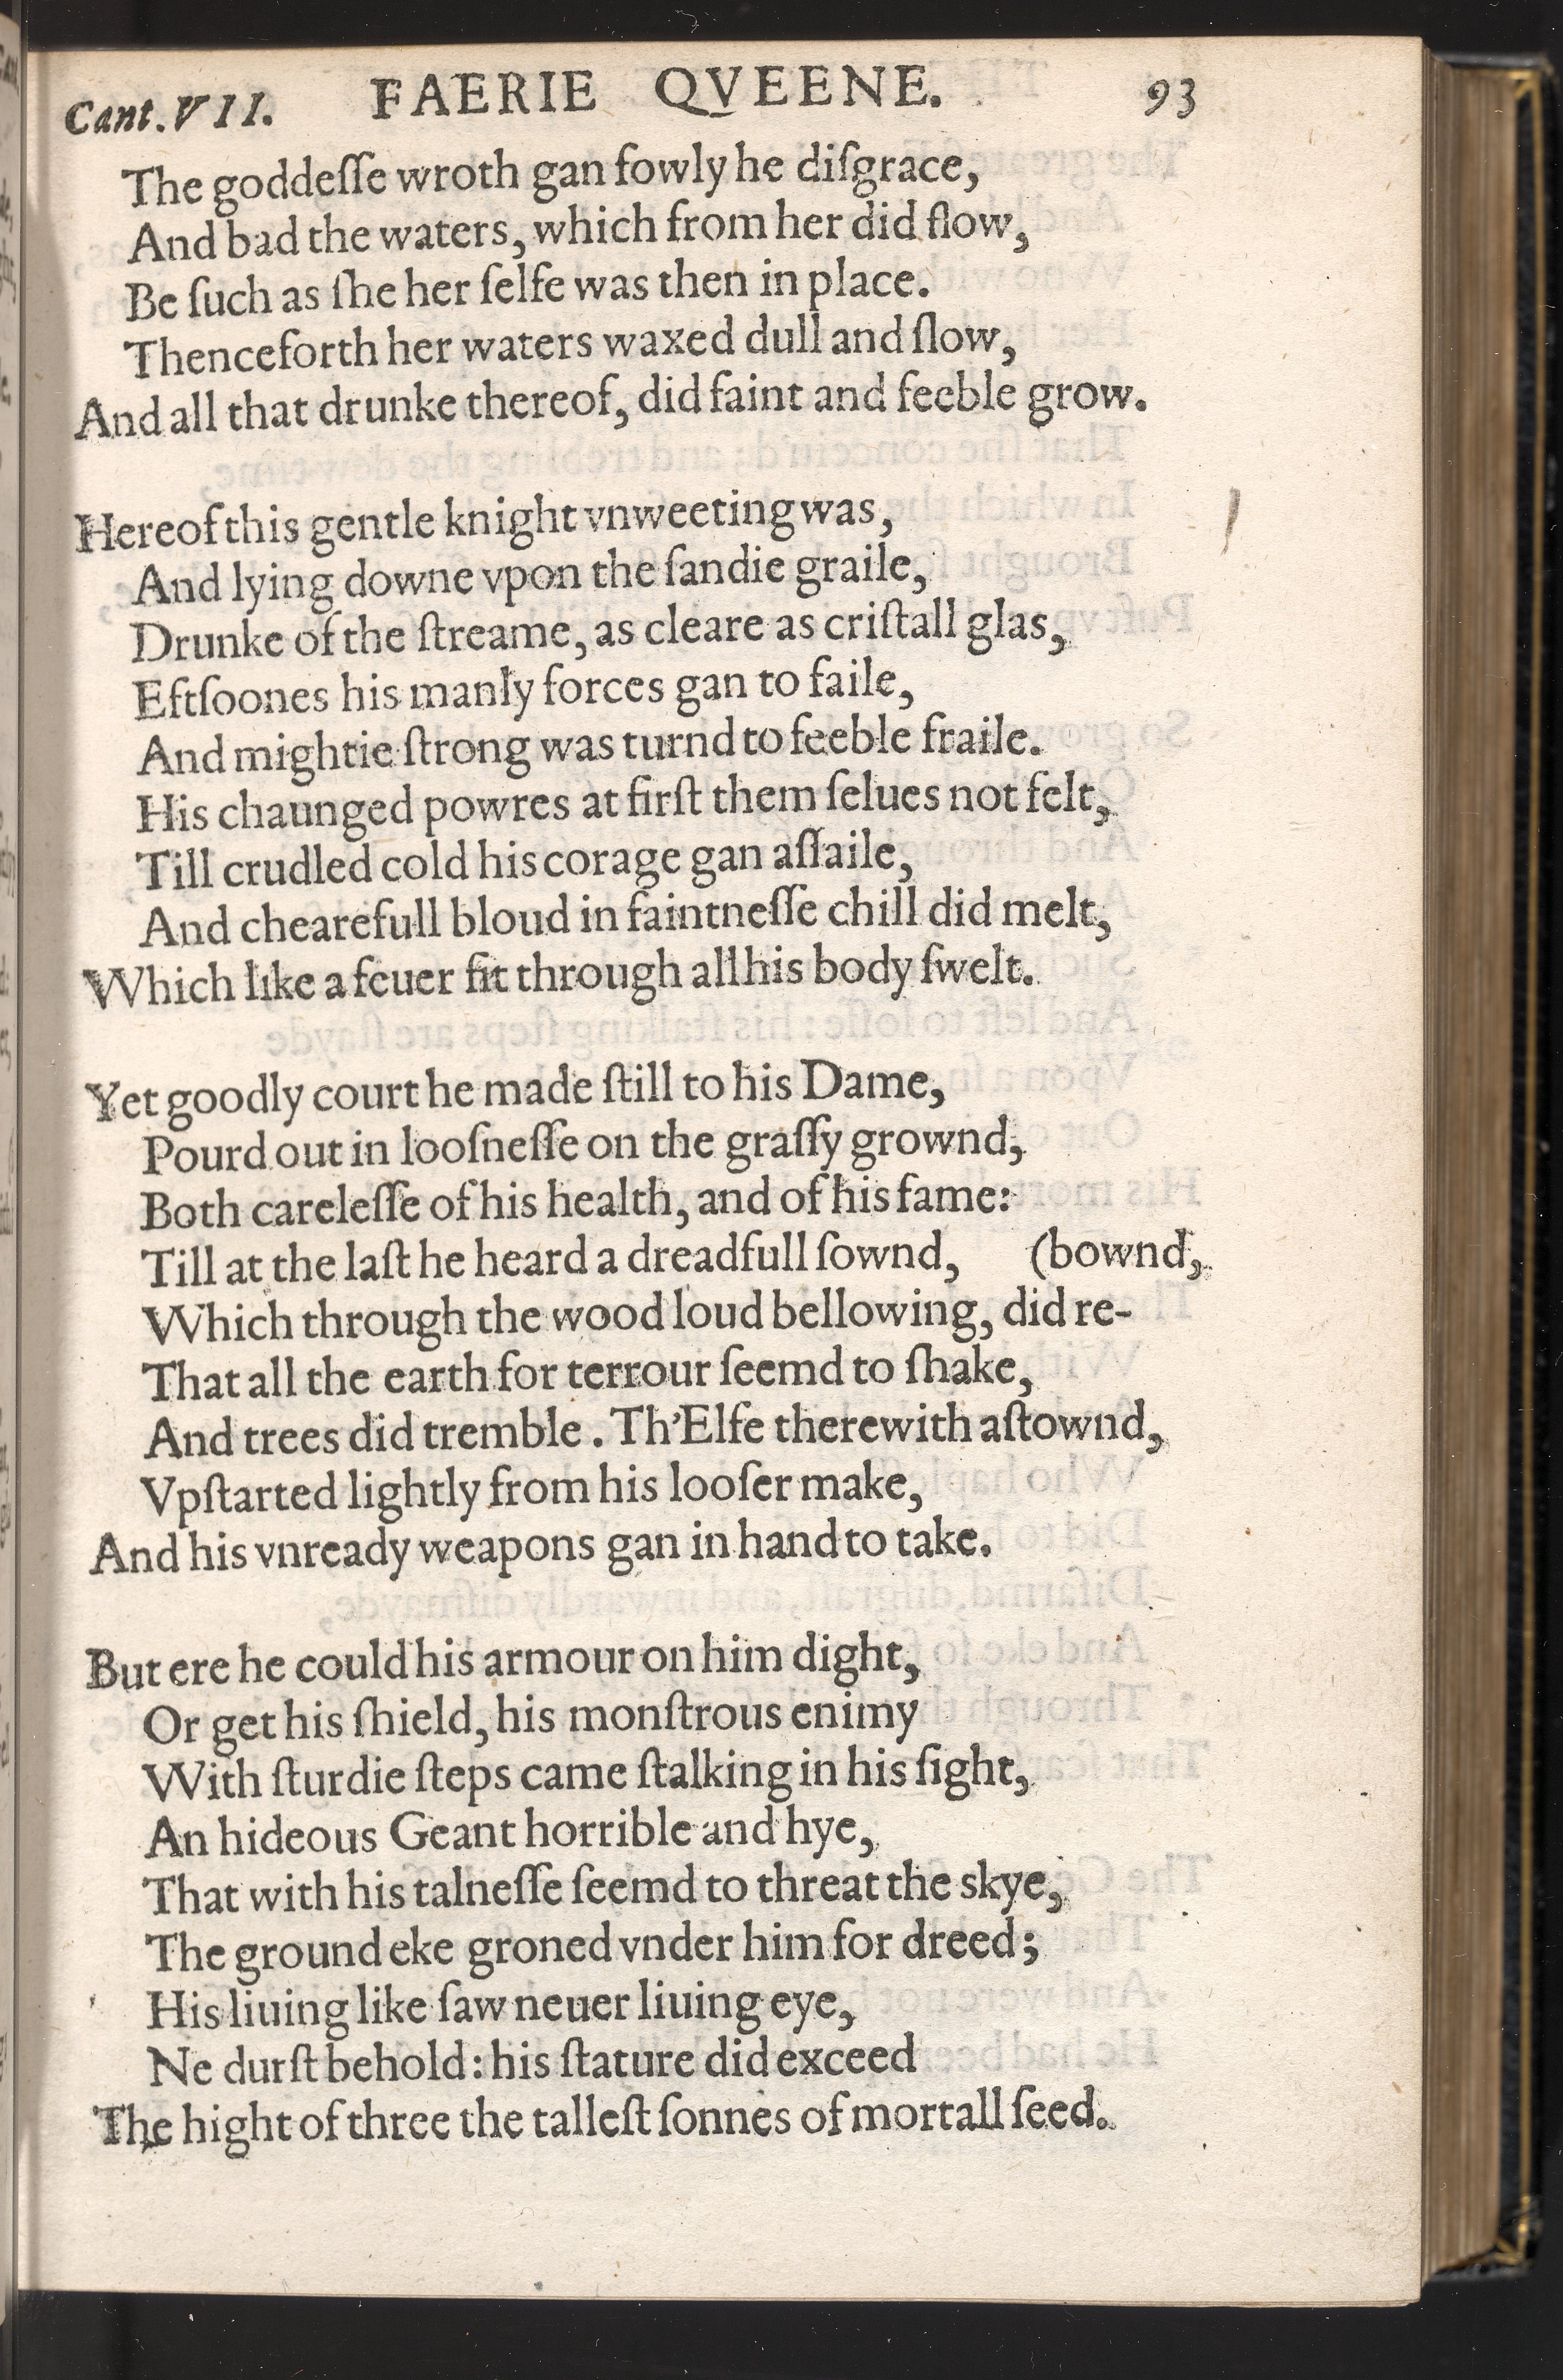 Cant. VII. FAERIE QVEENE. 93
The goddeſſe wroth gan fowly he diſgrace,
And bad the waters, which from her did flow,
Be ſuch as ſhe her ſelfe was then in place.
Thenceforth her waters waxed dull and ſlow,
And all that drunke thereof, did faint and feeble grow.
Hereof this gentle knight vnweeting was,
And lying downe vpon the ſandie graile,
Drunke of the ſtreame, as cleare as criſtall glas,
Eftſoones his manly forces gan to faile,
And mightie ſtrong was turnd to feeble fraile.
His chaunged powres at firſt them ſelues not felt,
Till crudled cold his corage gan aſſaile,
And chearefull bloud in faintneſſe chill did melt,
Which like a feuer fit through all his body ſwelt.
Yet goodly court he made ſtill to his Dame,
Pourd out in looſneſſe on the graſſy grownd,
Both careleſſe of his health, and of his fame:
Till at the laſt he heard a dreadfull ſownd, (bownd,
Which through the wood loud bellowing, did re-
That all the earth for terrour ſeemd to ſhake,
And trees did tremble. Th'Elfe therewith aſtownd,
Vpſtarted lightly from his looſer make,
And his vnready weapons gan in hand to take.
But ere he could his armour on him dight,
Or get his ſhield, his monſtrous enimy
With ſturdie ſteps came ſtalking in his ſight,
An hideous Geant horrible and hye,
That with his talneſſe ſeemd to threat the skye,
The ground eke groned vnder him for dreed;
His liuing like ſaw neuer liuing eye,
Ne durſt behold: his ſtature did exceed
The hight of three the talleſt ſonnes of mortall ſeed.